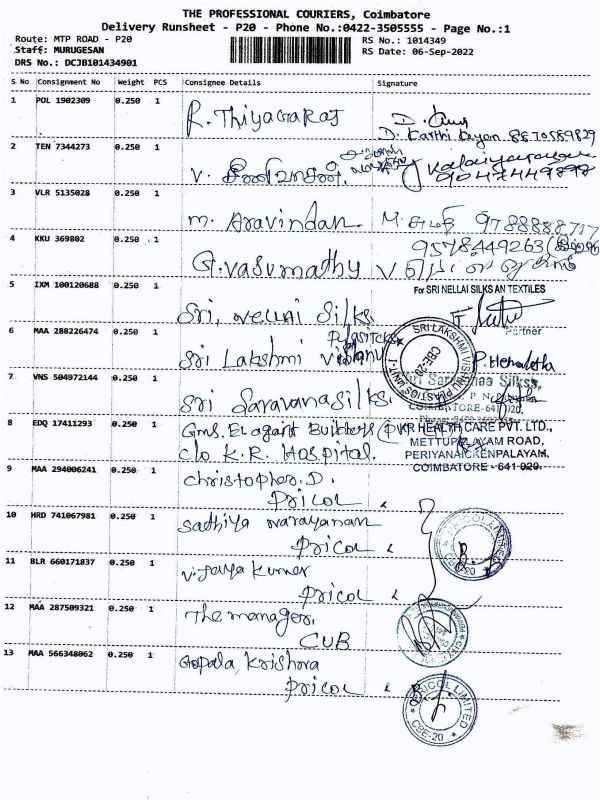 THE PROFESSIONAL COURIERS, Coimbatore
Delivery Runsheet - P20 - Phone No.:0422-3505555 - Page No.:1
Route: MTP ROAD - P20
RS No.: 1014349
Staff: MURUGESAN
RS Date: 06-Sep-2022
DRS No.: DCJB101434901
S No Consignment No Weight PCS Consignee Details Signature
1 POL 1902309 0.250 1 R. Thiyagaraj
D. Karthi Keyan 8870589829
2 TEN 7344273 0.250 1 V. சீனிவாசன்
9047449898
3 VLR 5135028 0.250 1 M. Aravindan M. சுமதி 9788888717
4 KKU 369802 0.250 1 G. Vasumathy 9578449263
5 IXM 100120688 0.250 1 Sri. Nellai Silks.
For SRI NELLAI SILKS AN TEXTILES
Partner
6 MAA 288226474 0.250 1 Sri Lakshmi
SRI LAKSHMI VISHNU PLASTICS UNIT-1
CBE-20
P. Hemalatha
7 VNS 504972144 0.250 1 Sri Saravana Silks.
COIMBATORE-641 020.
8 EDQ 17411293 0.250 1 Gms. Elagant Builders
C/o K.R. Hospital.
KR HEALTH CARE PVT. LTD.,
METTUPALAYAM ROAD,
PERIYANAICKENPALAYAM,
COIMBATORE - 641 020.
9 MAA 294006241 0.250 1 Christopher. D.
Pricol
10 HRD 741067981 0.250 1 Sathiya Narayanan
Pricol
PRICOL LIMITED
CBE-20
11 BLR 660171837 0.250 1 Vijaya Kumar
Pricol
12 MAA 287509321 0.250 1 The manager.
CUB
13 MAA 566348062 0.250 1 Gopala Krishna
Pricol
PRICOL LIMITED
CBE-20